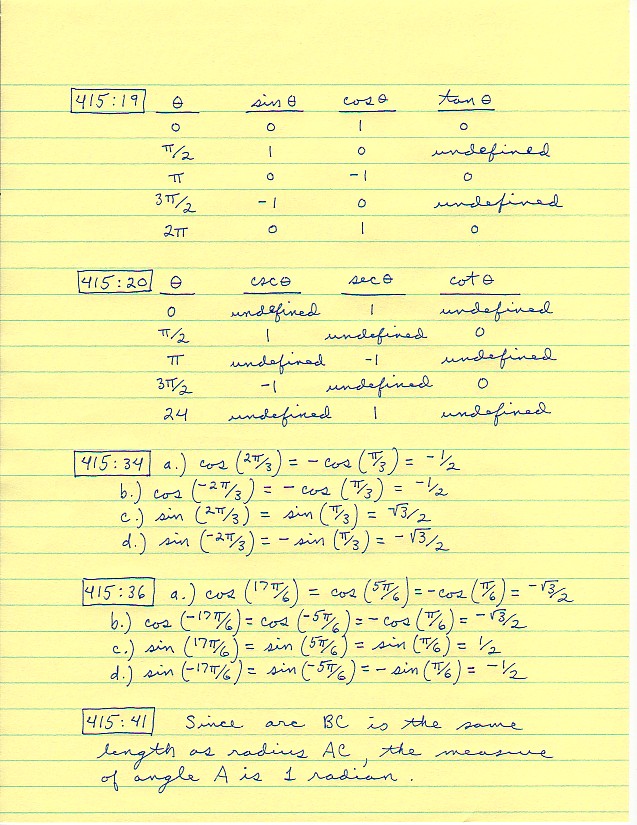 415:19 θ sin θ cos θ tan θ
0 0 1 0
π/2 1 0 undefined
π 0 -1 0
3π/2 -1 0 undefined
2π 0 1 0
415:20 θ csc θ sec θ cot θ
0 undefined 1 undefined
π/2 1 undefined 0
π undefined -1 undefined
3π/2 -1 undefined 0
24 undefined 1 undefined
415:34 a.) cos (2π/3) = -cos (π/3) = -1/2
b.) cos (-2π/3) = -cos (π/3) = -1/2
c.) sin (2π/3) = sin (π/3) = √3/2
d.) sin (-2π/3) = -sin (π/3) = -√3/2
415:36 a.) cos (17π/6) = cos (5π/6) = -cos (π/6) = -√3/2
b.) cos (-17π/6) = cos (-5π/6) = -cos (π/6) = -√3/2
c.) sin (17π/6) = sin (5π/6) = sin (π/6) = 1/2
d.) sin (-17π/6) = sin (-5π/6) = -sin (π/6) = -1/2
415:41 Since arc BC is the same
length as radius AC, the measure
of angle A is 1 radian.